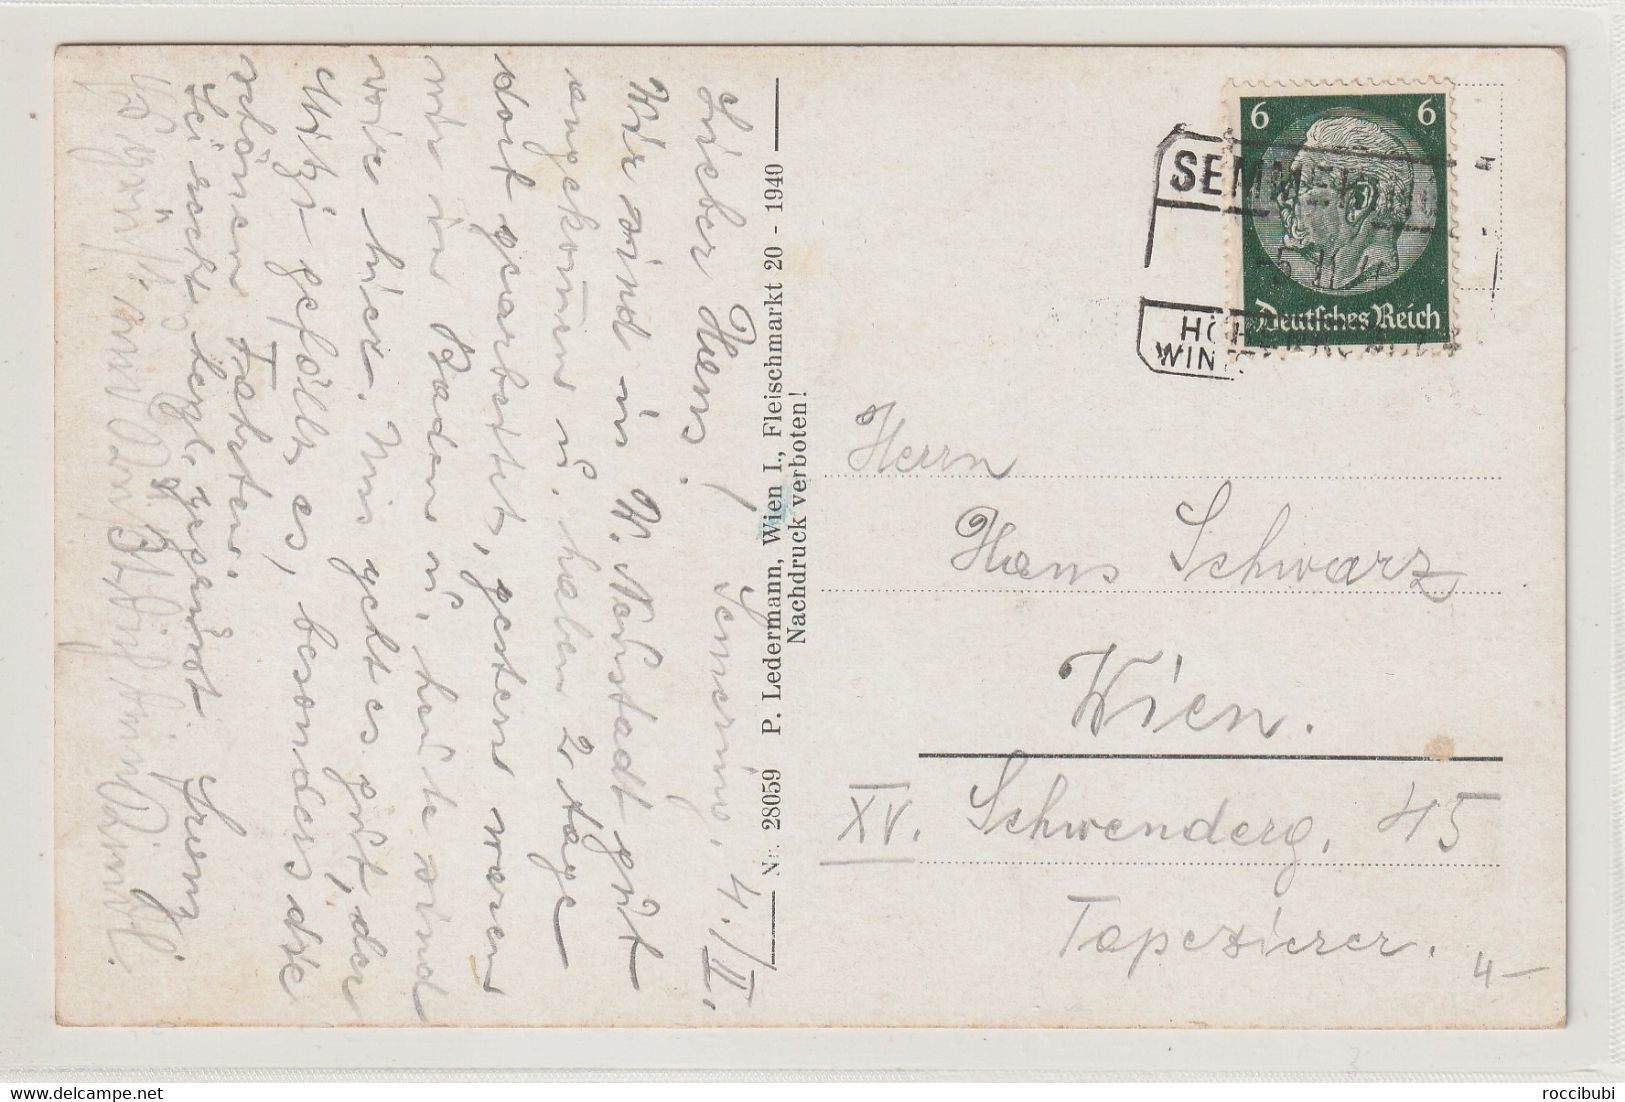 Semmering, 4./II.
Lieber Hans!
Wir sind in W. Neustadt gut
angekommen u. haben 2 tage
dort gearbeitet, gestern waren
wir in Baden u. heute sind
wir hier. Mir geht es gut, der
Mitzi gefällt es, besonders die
schönen Fahrten.
Sei recht herzl. gegrüsst
Nr. 28059 P. Ledermann, Wien I., Fleischmarkt 20 - 1940
Nachdruck verboten!
6 6
Deutsches Reich
SEMMERING
5. II.
WIN
Herrn
Hans Schwarz
Wien.
XV. Schwenderg. 45
Tapezierer.
4-
roccibubi